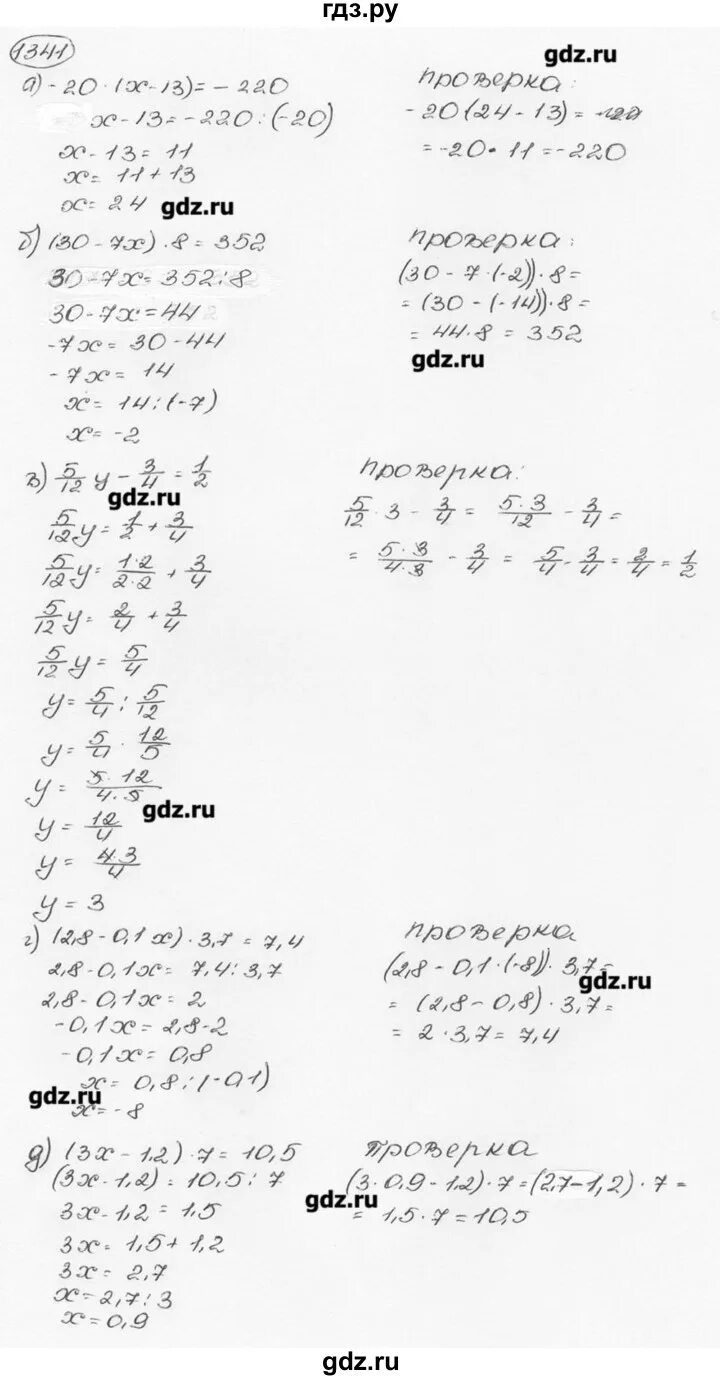 гдз.ру
1341
gdz.ru
а) -20 · (x-13) = -220
x-13 = -220 : (-20)
x-13 = 11
x = 11+13
x = 24
gdz.ru
проверка:
-20(24-13) =
= -20·11 = -220
б) (30-7x)·8 = 352
30-7x = 352:8
30-7x = 44
-7x = 30-44
-7x = 14
x = 14:(-7)
x = -2
проверка:
(30-7·(-2))·8 =
= (30-(-14))·8 =
= 44·8 = 352
gdz.ru
в) 5/12 y - 3/4 = 1/2
gdz.ru
5/12 y = 1/2 + 3/4
5/12 y = 1·2/2·2 + 3/4
5/12 y = 2/4 + 3/4
5/12 y = 5/4
y = 5/4 : 5/12
y = 5/4 · 12/5
y = 5·12/4·5
gdz.ru
y = 12/4
y = 4·3/4
y = 3
проверка:
5/12 · 3 - 3/4 = 5·3/12 - 3/4 =
= 5·3/4·3 - 3/4 = 5/4 - 3/4 = 2/4 = 1/2
г) (2,8-0,1x)·3,7 = 7,4
2,8-0,1x = 7,4:3,7
2,8-0,1x = 2
-0,1x = 2,8-2
-0,1x = 0,8
x = 0,8:(-0,1)
gdz.ru
x = -8
проверка
(2,8-0,1·(-8))·3,7=
gdz.ru
= (2,8-0,8)·3,7=
= 2·3,7 = 7,4
д) (3x-1,2)·7 = 10,5
(3x-1,2) = 10,5:7
3x-1,2 = 1,5
3x = 1,5+1,2
3x = 2,7
x = 2,7:3
x = 0,9
проверка
(3·0,9-1,2)·7 = (2,7-1,2)·7 =
gdz.ru
= 1,5·7 = 10,5
gdz.ru